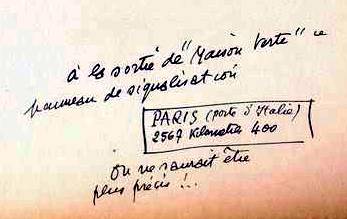 à la sortie de "Maison Verte" ce
panneau de signalisation
PARIS (porte d'Italie)
2567 Kilomètres 400
On ne saurait être
plus précis !..